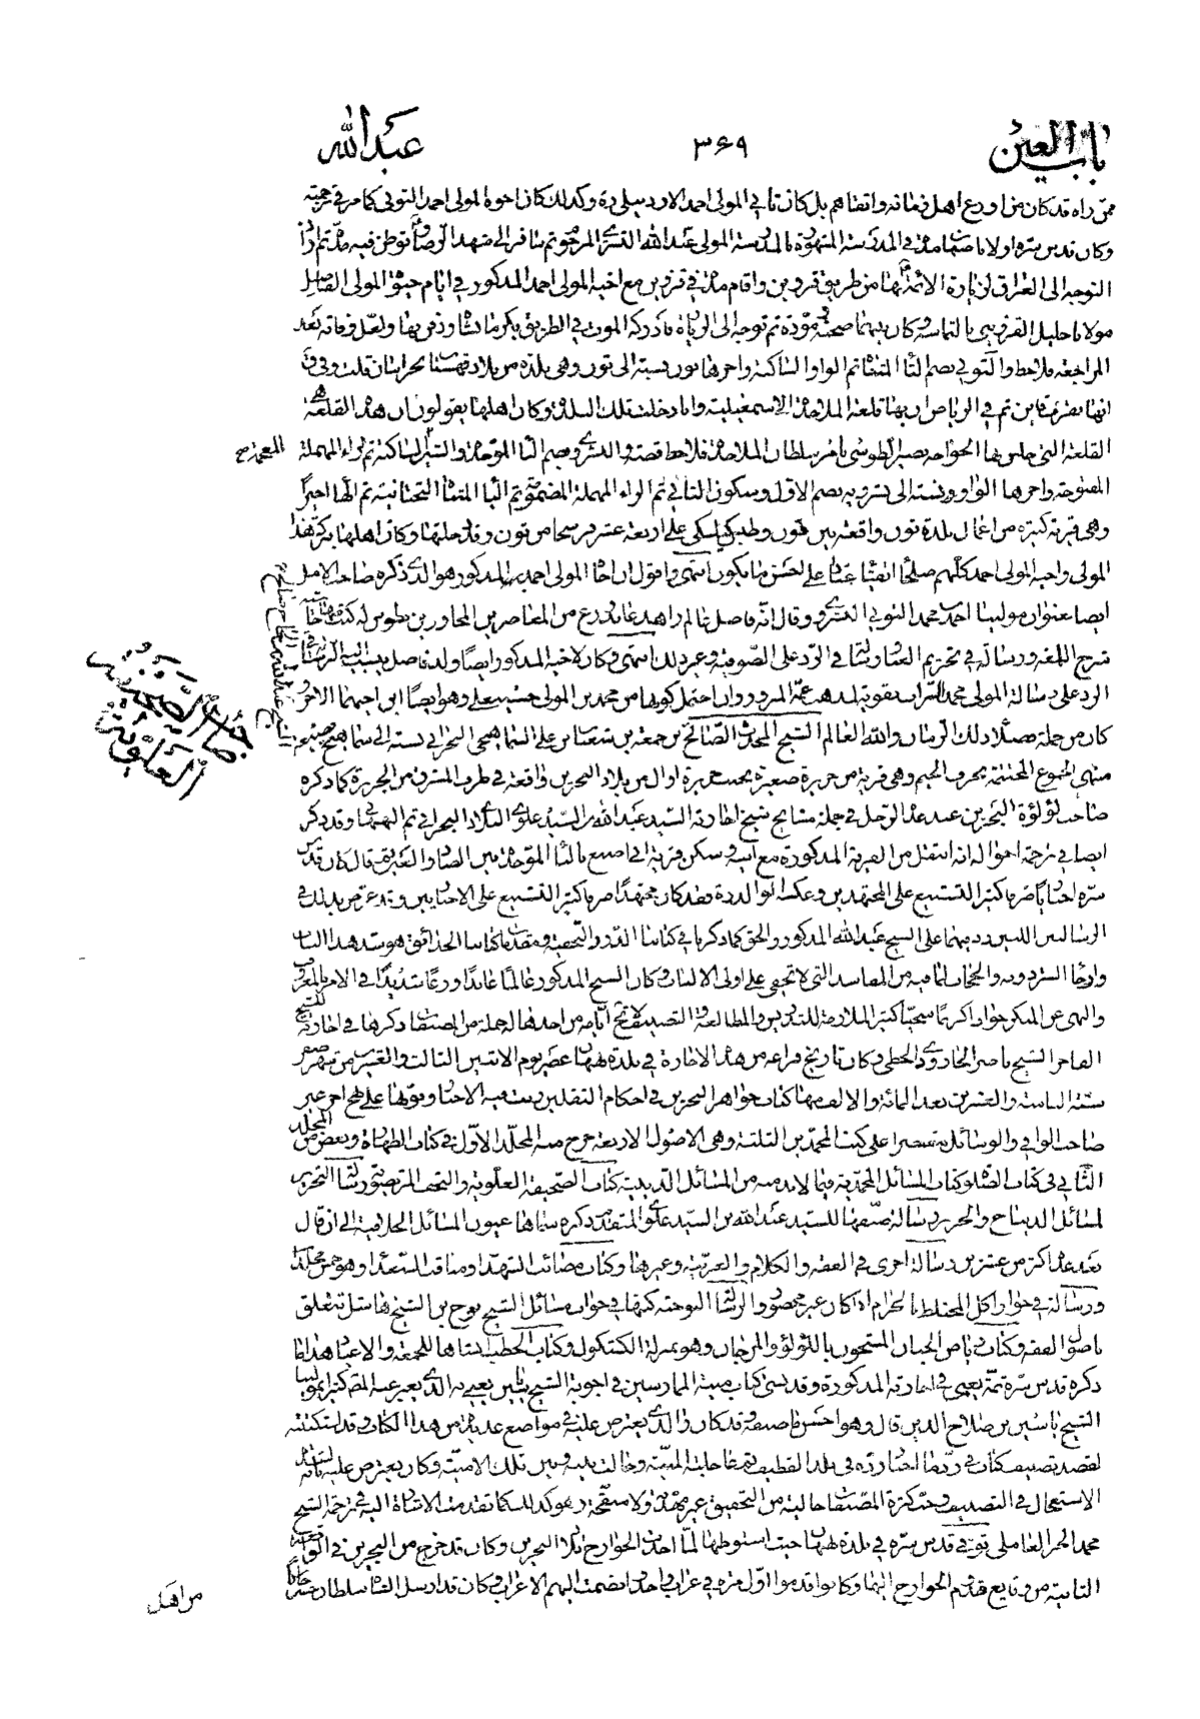 باب العين ٣٦٩ عبد الله
ممن رآه قد كان من اورع اهل زمانه واتقاهم بل كان ثاني المولى احمد الاردبيلي ره وكذلك كان اخوه المولى احمد التوني كما مر في ترجمته
وكان قدس سره اولا باصفهان مدة في المدرسة المشهورة بالمدرسة المولى عبد الله التستري المرحوم ثم سافر الى مشهد الرضا وتوطن فيه مدة ثم اراد
التوجه الى العراق لزيارة الائمة بها من طريق قزوين واقام مدة في قزوين مع اخيه المولى احمد المذكور في ايام حيوة المولى الفاضل
مولانا خليل القزويني بالتماسه وكان بينهما صحبة ومودة ثم توجه الى الزيارة فادركه الموت في الطريق بكرمانشاه ودفن بها ولعل وفاته بعد
المراجعة فلاحظ والتوني بضم التاء المثناة ثم الواو الساكنة واخرها نون نسبة الى تون وهي بلدة من بلاد قهستان بخراسان قلت وفي
انها بقرب قاين ثم في الرياض ان بها قلعة الملاحدة الاسمعيلية وانا دخلت تلك البلدة وكان اهلها يقولون ان هذه القلعة هي
القلعة التي حبس بها الخواجه نصير الطوسي بامر سلطان الملاحدة فلاحظ قصته والبشروي بضم الباء الموحدة والشين الساكنة ثم الراء المهملة
المعجمة صح
المفتوحة واخرها الواو نسبة الى بشرويه بضم الاول وسكون الثاني ثم الراء المهملة المضمومة ثم الياء المثناة التحتانية ثم الهاء اخيرا
وهي قرية كبيرة من اعمال بلدة تون واقعة بين تون وطبس كيلكي على اربعة عشر فرسخا من تون وقد دخلتها وكان اهلها ببركة هذا
المولى واخيه المولى احمد كلهم صلحاء اتقياء على احسن ما يكون انتهى واقول ان اخاه المولى احمد المذكور هو الذي ذكره صاحب الامل
ايضا بعنوان مولينا احمد بن محمد التوني البشروي وقال انه فاضل عالم زاهد عابد ورع من المعاصرين المجاور بن بطوس له كتب منها حاشية
شرح اللمعة ورسالة في تحريم الغناء ورسالة في الرد على الصوفية وغير ذلك انتهى وكان لاخيه المذكور ايضا ولد فاضل
الرد على رسالة المولى محمد
كان من جملة فضلاء ذلك الزمان والله العالم الشيخ المحدث الصالح بن جمعة بن شعبان بن علي السماهيجي البحراني نسبة الى سماهيج
الشيخ عبد الله بن الحاج صالح
جامع الصحيفة
العلوية
منتهى الجموع المختتمة بحرف الجيم وهي قرية من جزيرة صغيرة بجنب جزيرة اوال من بلاد البحرين واقعة في طرف المشرق من الجزيرة كما ذكره
صاحب لؤلؤة البحرين عند عد الرجل في جملة مشايخ شيخ اجازته السيد عبد الله بن السيد علوي البلادي البحراني ثم البهبهاني وقد ذكر
ايضا في ترجمة احواله انه انتقل من القرية المذكورة مع ابيه وسكن قرية ابي اصيبع بالباء الموحدة بين الصاد والعين قال كان قدس
سره اخباريا صرفا كثير التشنيع على المجتهدين وعكسه الوالد ره فقد كان مجتهدا صرفا كثير التشنيع على الاخباريين وقد تعرض بذلك في
الرسالتين اللتين رد فيهما على الشيخ عبد الله المذكور والحق كما ذكرنا في كتابنا الدرر النجفية ومقدمات كتابنا الحدائق هو سد هذا الباب
وارخاء الستر دونه والحجاب لما فيه من المفاسد التي لا تخفى على اولى الالباب وكان الشيخ المذكور عالما عابدا ورعا شديدا في الامر بالمعروف
والنهي عن المنكر جوادا كريما سخيا كثير الملازمة للتدريس والمطالعة والتصنيف لا تخلو ايامه من احدها له جملة من المصنفات ذكرها في اجازته للشيخ
الفاخر الشيخ ناصر الجارودي الخطي وكان تاريخ فراغه من هذه الاجازة في بلدة بهبهان عصر يوم الاثنين الثالث والعشرين من شهر صفر
سنة الثامنة والعشرين بعد المائة والالف منها كتاب جواهر البحرين في احكام الثقلين رتب فيه الاخبار وبوبها على نهج اخر غير
صاحب الوافي والوسائل مقتصرا على كتب المحمدين الثلثة وهي الاصول الاربعة خرج منه المجلد الاول في كتاب الطهارة وبعض من المجلد
الثاني في كتاب الصلوة وكتاب المسائل المحمدية فيما لابد منه من المسائل الدينية كتاب الصحيفة العلوية والتحف المرتضوية رسالة التحرير
لمسائل الديباج والحرير رسالة صنفها للسيد عبد الله بن السيد علوي المتقدم ذكره سماها عيون المسائل الخلافية الى ان قال
بعد عد اكثر من عشرين رسالة اخرى في الفقه والكلام والعربية وغيرها وكتاب مصائب الشهداء ومناقب السعداء وهو خمس مجلدات
ورسالة في جواز اكل المختلط بالحرام اذا كان غير محصور والرسالة النوحية كتبها في جواب مسائل الشيخ نوح بن الشيخ هاشل تتعلق
باصول الفقه وكتاب رياض الجنان المشحون باللؤلؤ والمرجان وهو بمنزلة الكشكول وكتاب الخطب انشاها للجمعة والاعياد هذا ما
ذكره قدس سره ثمة يعني في اجازته المذكورة وقد نسي كتاب منية الممارسين في اجوبة الشيخ ياسين يعني به الذي يعبر عنه المصنف كثيرا بمولينا
الشيخ ياسين بن صلاح الدين قال وهو احسن ما صنفه قد كان والدي يعترض عليه في مواضع عديدة من هذا الكتاب وقد استكتبته
لقصد تصنيف كتاب في رد ما اختاره في بلد القطيف ثم عاجلته المنية وحالت بينه وبين تلك الامنية وكان يعترض عليه بانه
الاستعجال في التصنيف وحب كثرة المصنفات خالية من التحقيق غير مهذبة ولا منقحة وهو كذلك كما تقدمت الاشارة اليه في ترجمة الشيخ
محمد الحر العاملي توفي قدس سره في بلدة بهبهان حيث استوطنها لما اخذت الخوارج بلاد البحرين وكان قد خرج من البحرين في الواقعة
الثانية من وقايع قدوم الخوارج اليها وكانوا قدموا اول مرة في غراب واحد انضمت اليهم الاعراب وكان قد ارسل الشاه سلطان حسين
من اهل